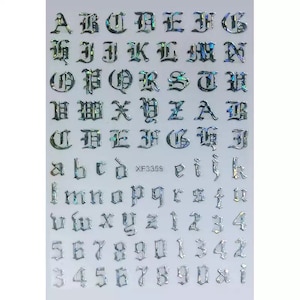 A B C D E F G
H I J K L M N
O P Q R S T
U V W X Y Z A B
C D E F G H I
a b c d XF3358 e i j k
l m n o p q r s f u
v w x y z 1 2 3 4
5 6 7 8 9 0 0 1 2 3 4
3 4 5 6 7 8 9 0 a i